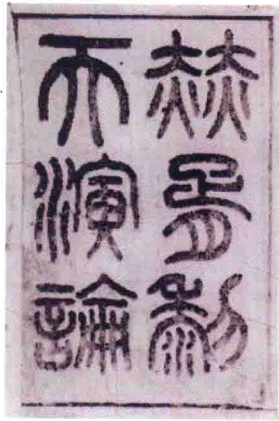 赫胥黎
天演論